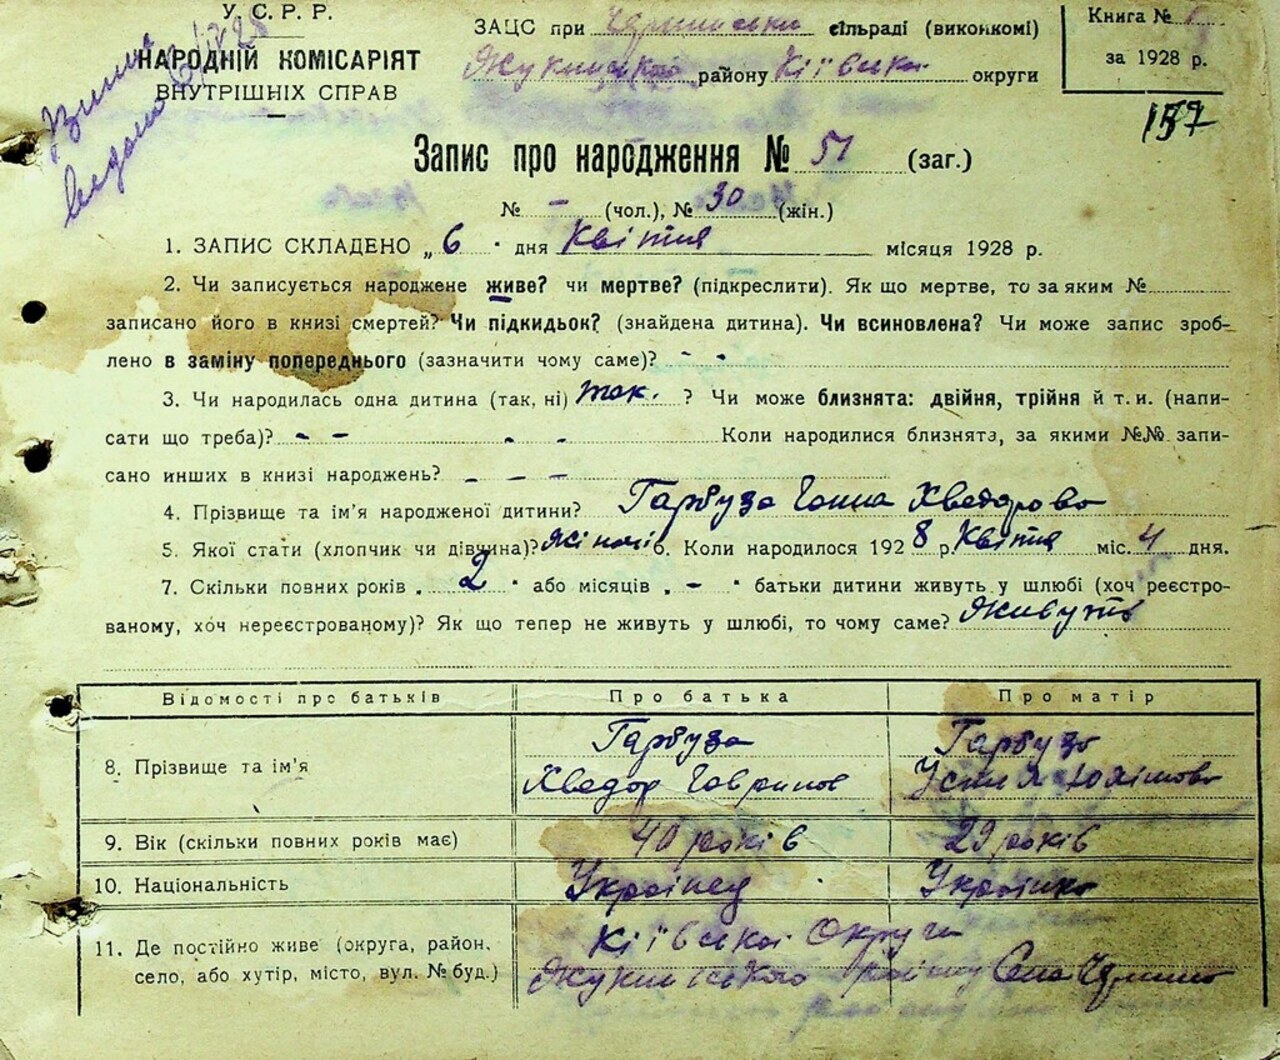 У. С. Р. Р.
НАРОДНІЙ КОМІСАРІЯТ
ВНУТРІШНІХ СПРАВ
ЗАЦС при сільраді (виконкомі)
Жукинського району Київської округи
Книга №
за 1928 р.
157
Запис про народження № 51 (заг.)
№ - (чол.), № 30 (жін.)
1. ЗАПИС СКЛАДЕНО „ 6 " дня Квітня місяця 1928 р.
2. Чи записується народжене живе? чи мертве? (підкреслити). Як що мертве, то за яким №
записано його в книзі смертей? Чи підкидьок? (знайдена дитина). Чи всиновлена? Чи може запис зроб-
лено в заміну попереднього (зазначити чому саме)? - -
3. Чи народилась одна дитина (так, ні) так. ? Чи може близнята: двійня, трійня й т. и. (напи-
сати що треба)? - - - - Коли народилися близнята, за якими №№ запи-
сано инших в книзі народжень? - - -
4. Прізвище та ім'я народженої дитини? Гарбуза Ганна Хведорова
5. Якої стати (хлопчик чи дівчина)? жіночіі 6. Коли народилося 1928 р. Квітня міс. 4 дня.
7. Скільки повних років „ 2 " або місяців „ - " батьки дитини живуть у шлюбі (хоч реєстро-
ваному, хоч нереєстрованому)? Як що тепер не живуть у шлюбі, то чому саме? Живуть
Відомості про батьків Про батька Про матір
8. Прізвище та ім'я
Гарбуза Гарбуза
Хведор Гаврилов Устия Юхимова
9. Вік (скільки повних років має) 40 років 29 років
10. Національність Українец Українка
11. Де постійно живе (округа, район,
село, або хутір, місто, вул. № буд.)
Київської Округи
Жукинського Району Село